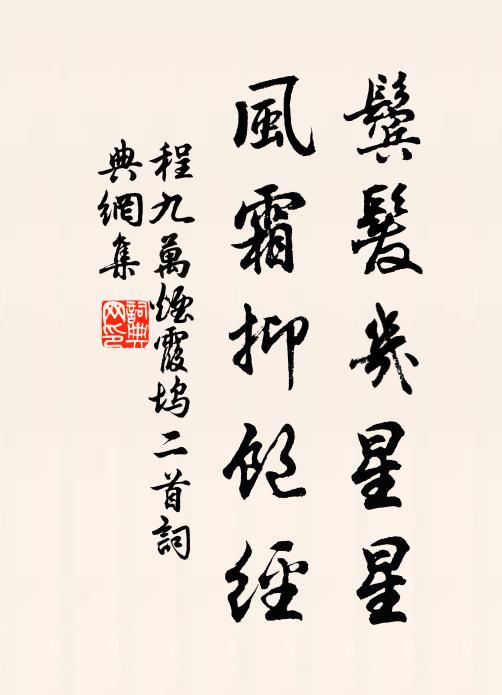 鬓髮幾星星
風霜抑飽經
程九萬煙霞塢二首詞
典網集
詞典網印